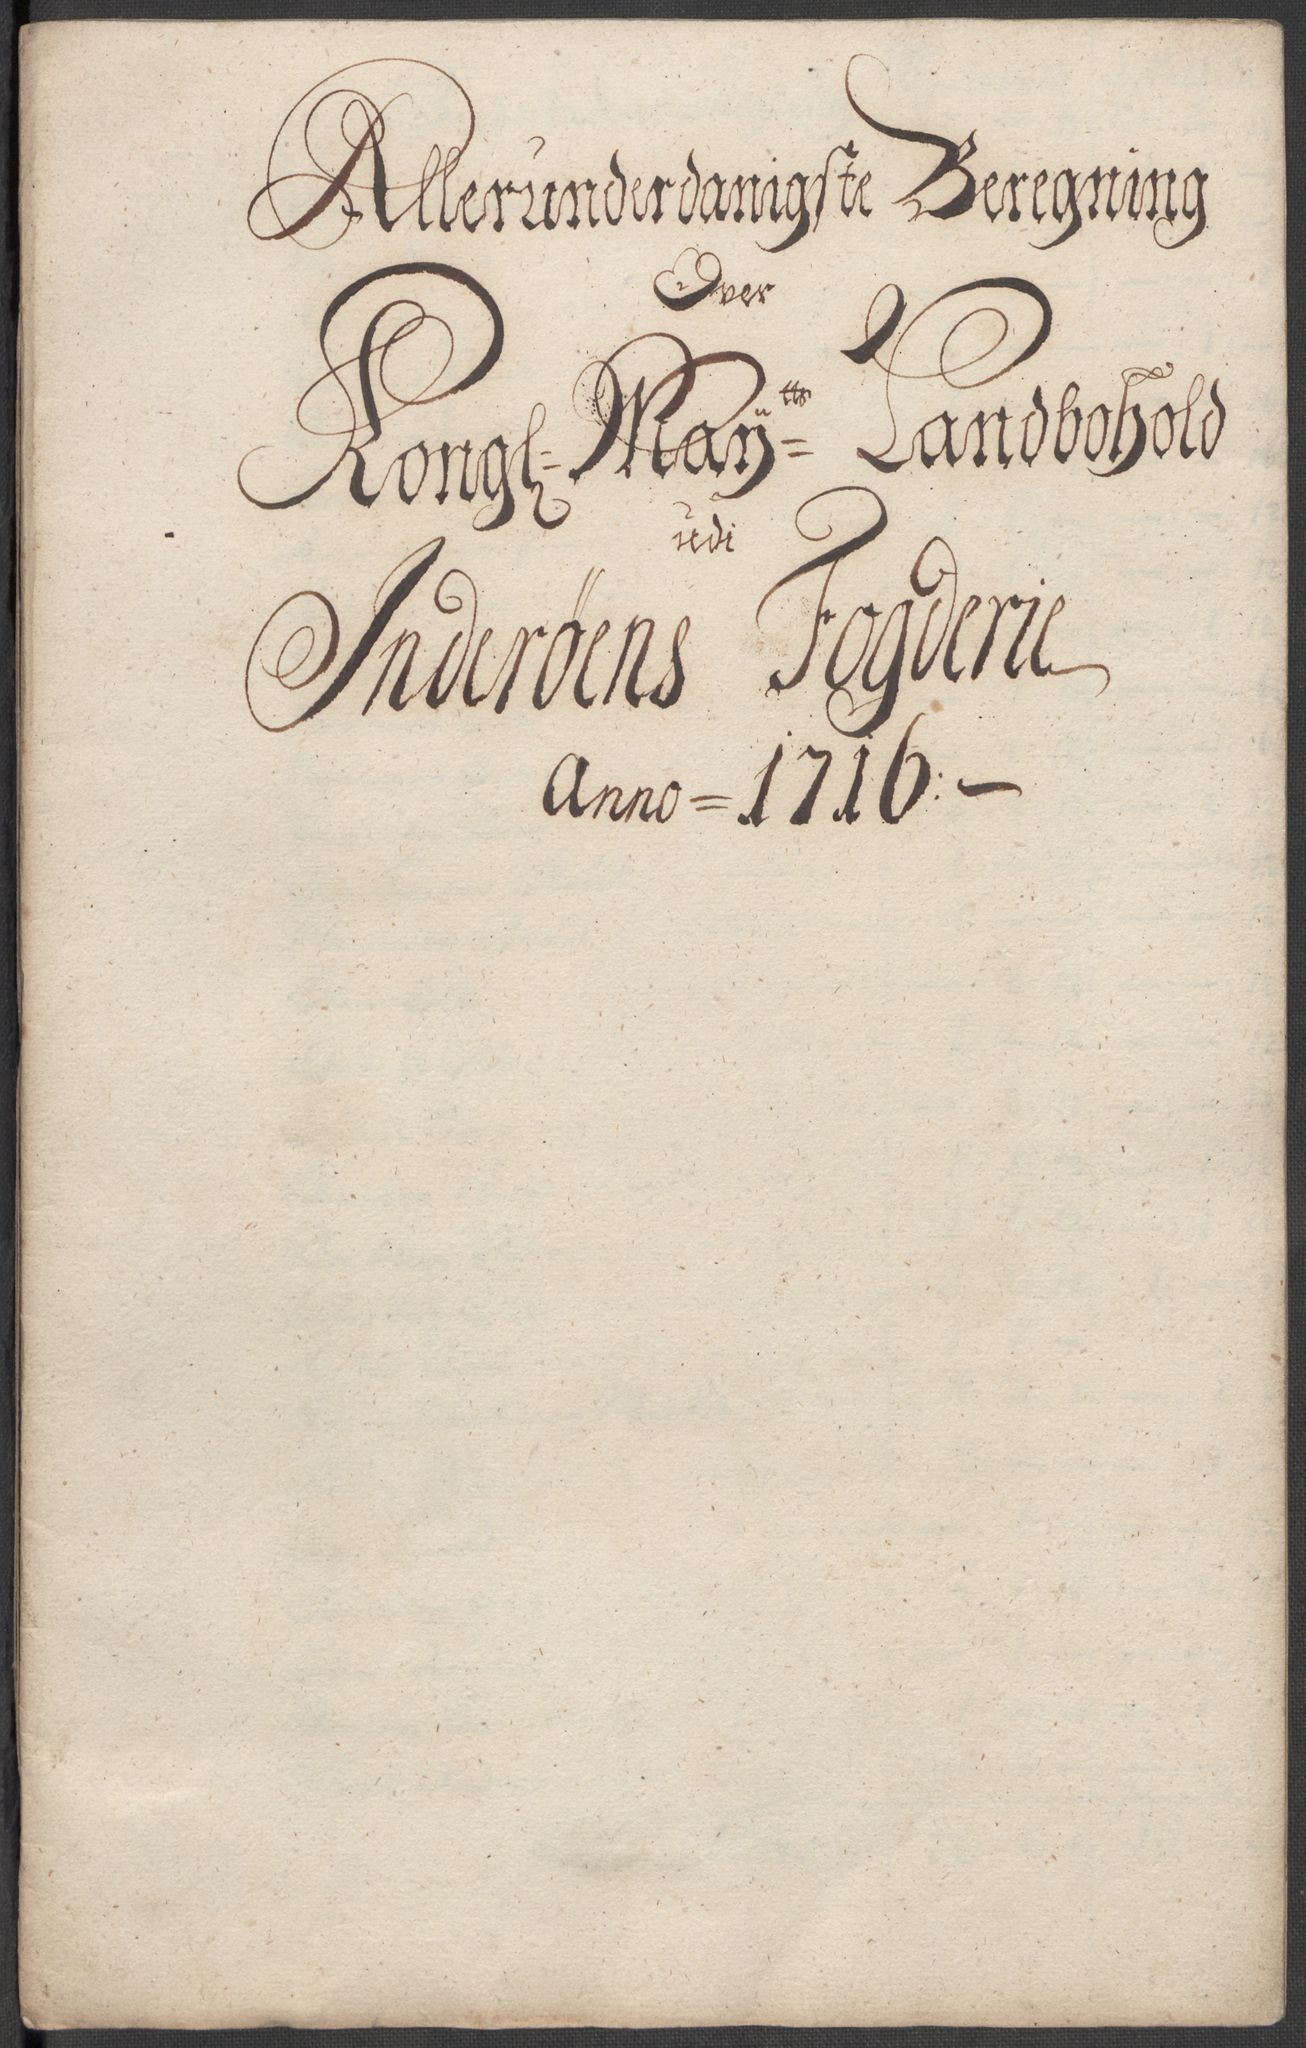 Allerunderdanigste Beregning
Over
Kongl= Maÿtts= Landbohold
udi
Inderöens Fogderie
Anno= 1716:—